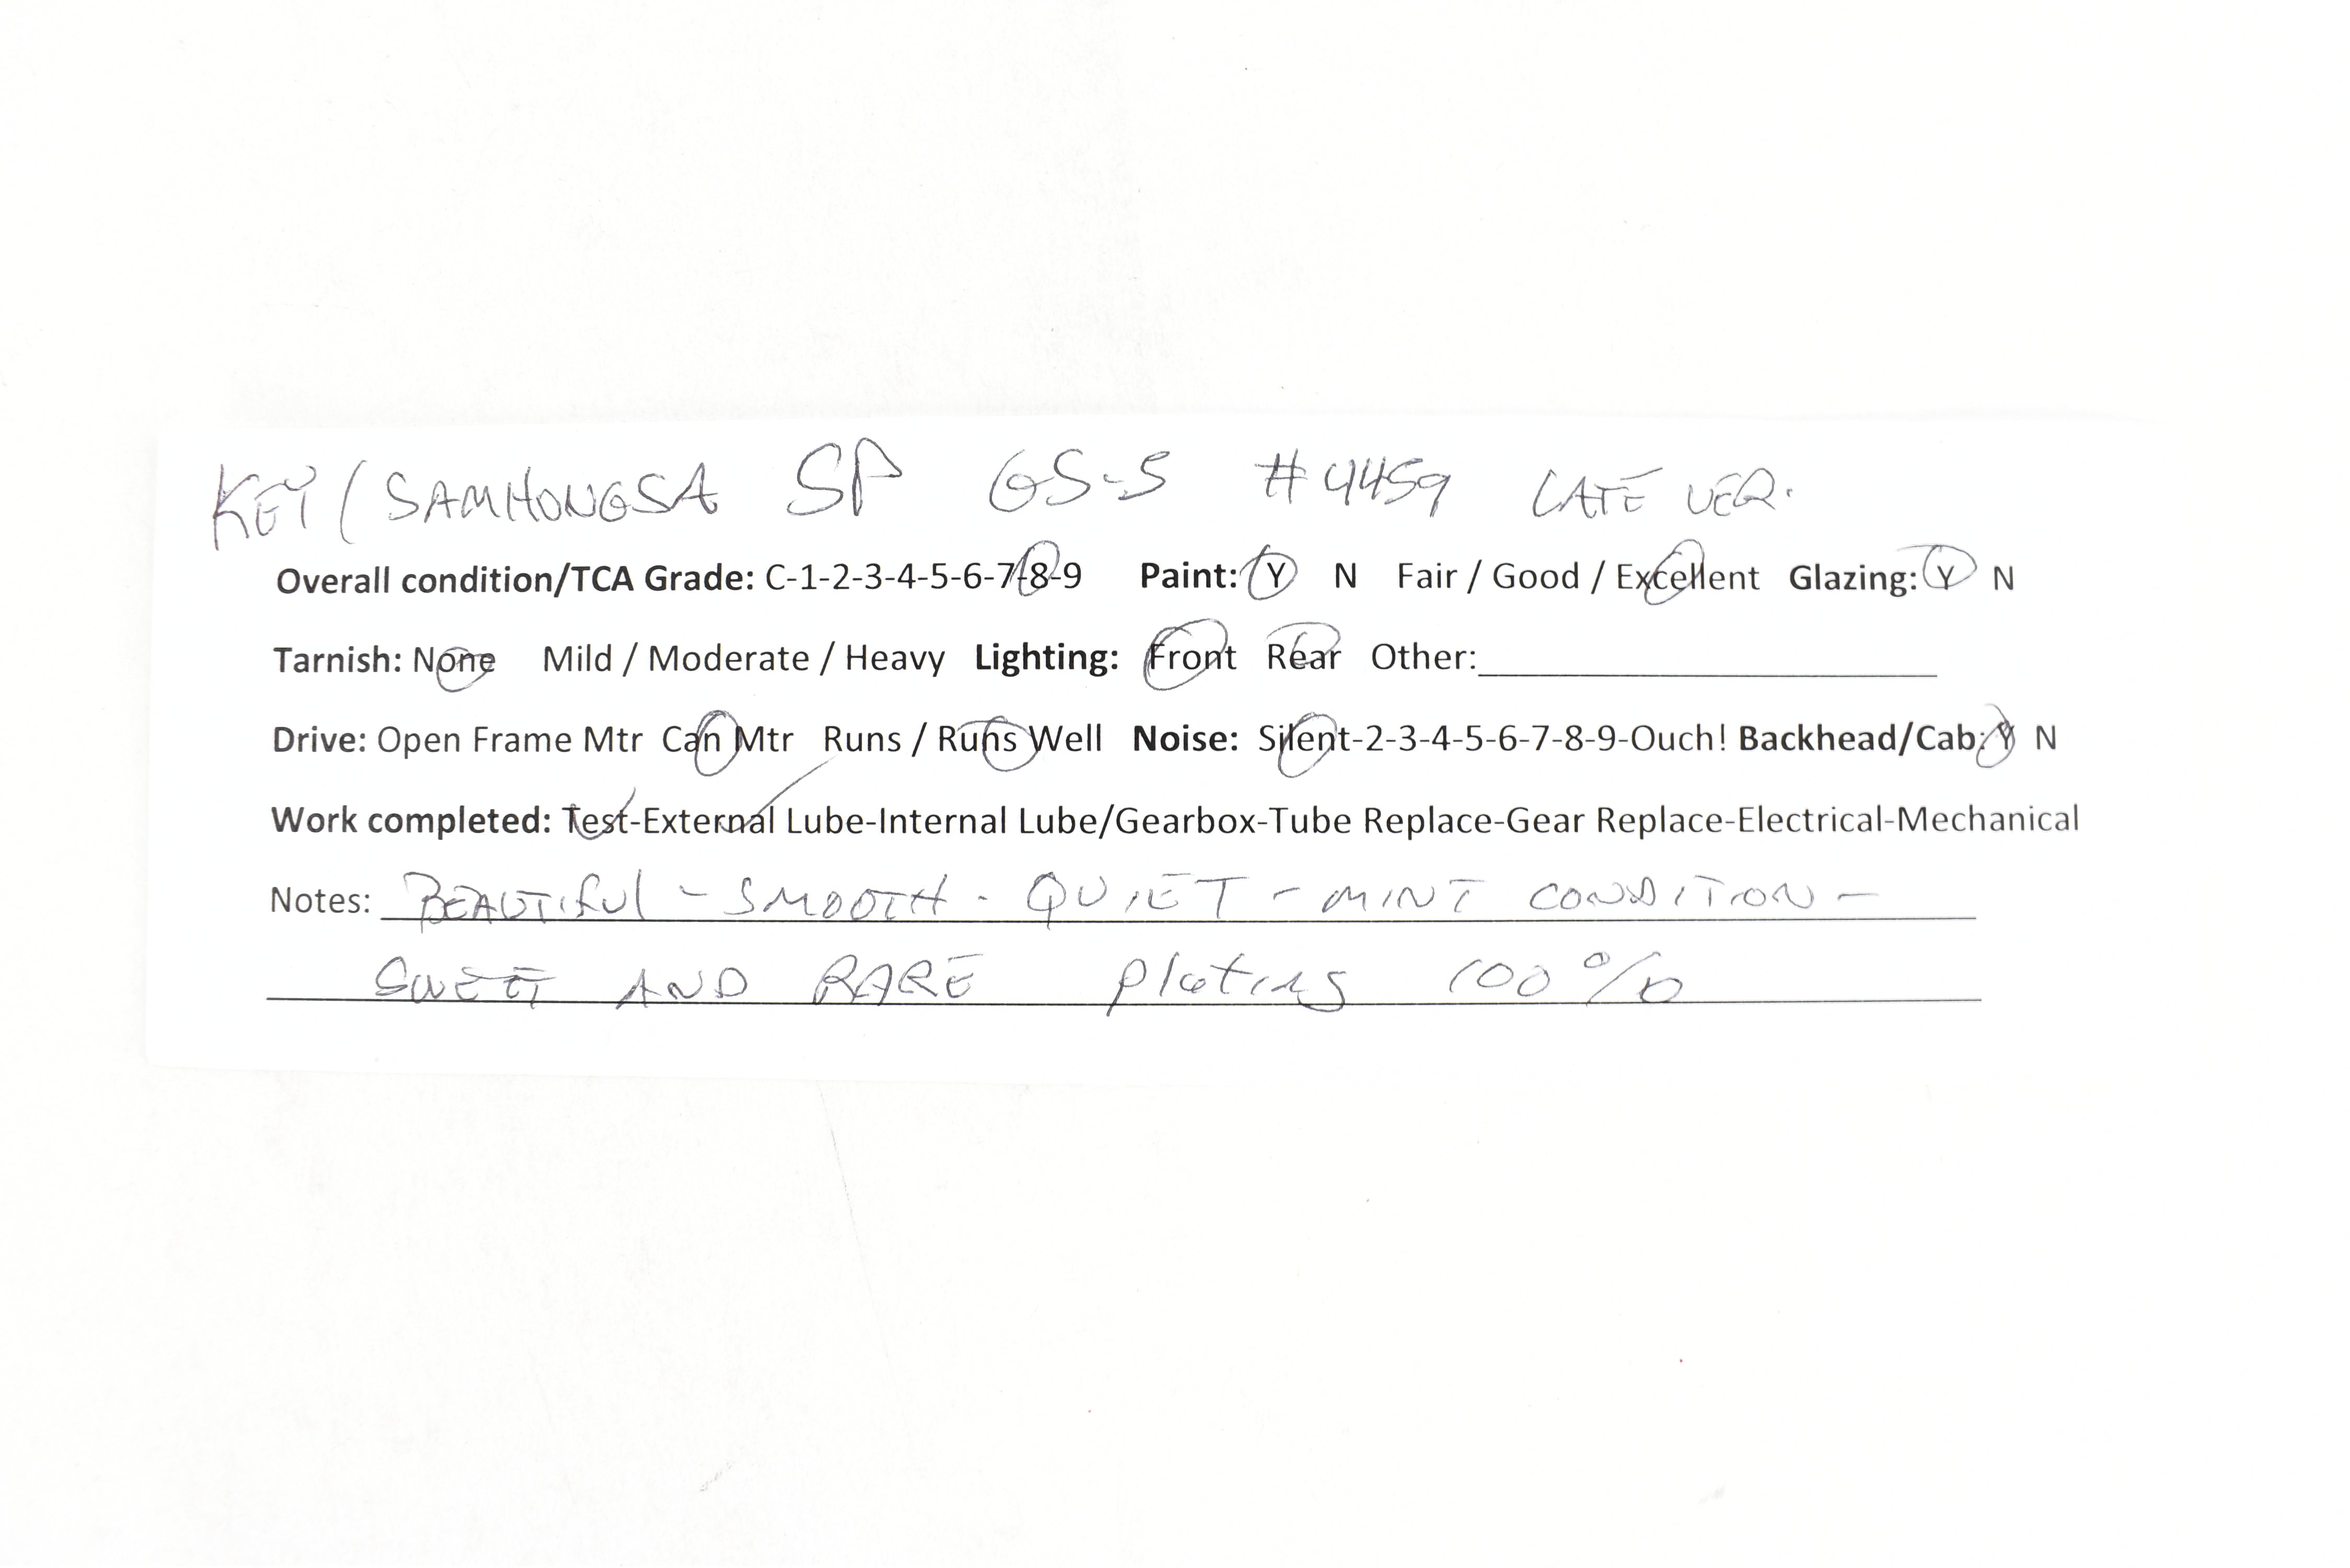 KEY / SAMHONGSA SP GS-5 #4459 LATE VER.
Overall condition/TCA Grade: C-1-2-3-4-5-6-7-8-9 Paint: Y N Fair / Good / Excellent Glazing: Y N
Tarnish: None Mild / Moderate / Heavy Lighting: Front Rear Other:
Drive: Open Frame Mtr Can Mtr Runs / Runs Well Noise: Silent-2-3-4-5-6-7-8-9-Ouch! Backhead/Cab: Y N
Work completed: Test-External Lube-Internal Lube/Gearbox-Tube Replace-Gear Replace-Electrical-Mechanical
Notes: BEAUTIFUL - SMOOTH - QUIET - MINT CONDITION -
SWEET AND RARE Plating 100%